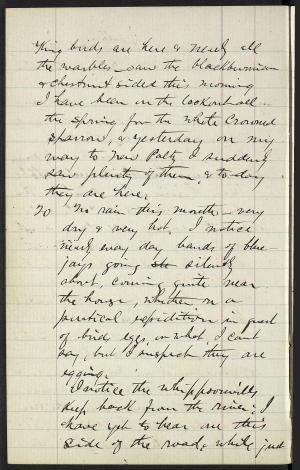 King birds are here & nearly all
the warbles - saw the blackburnian
& chestnut sided this morning
I have been on the lookout all
the spring for the white crowned
sparrow, & yesterday on my
way to New Paltz I suddenly
saw plenty of them, & to-day
they are here.
20 No rain this month - very
dry & very hot. I notice
nearly every day bands of blue
jays going silently
about, coming quite near
the house, whether on a
piratical expidition in quest
of birds eggs, or what, I cant
say, but I suspect they are
egging.
I notice the whippoorwills
keep back from the river; I
have yet to hear one this
side of the road, while just